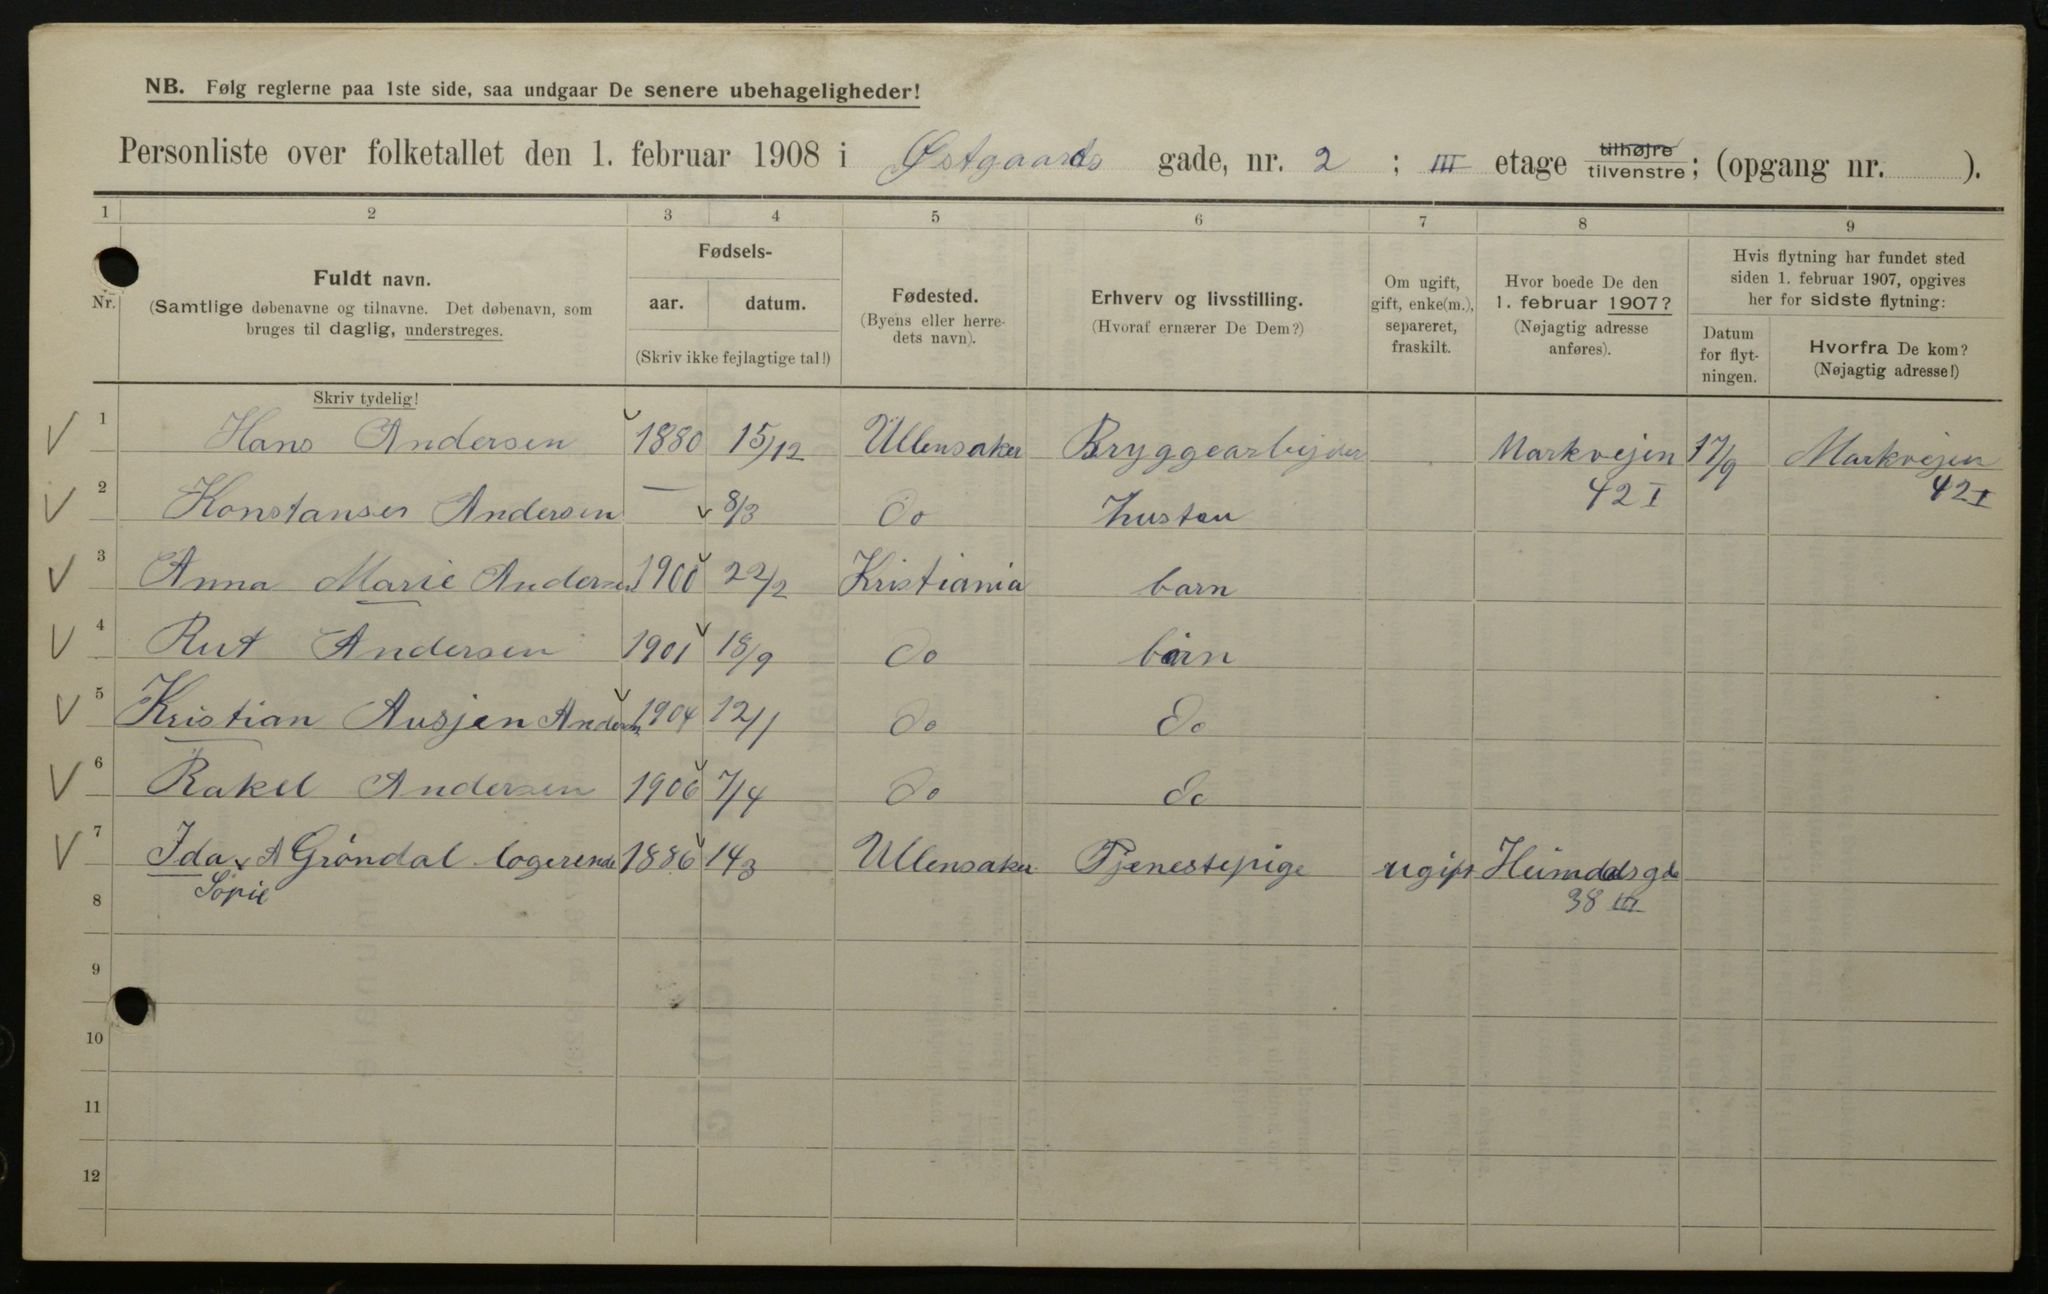 NB. Følg reglerne paa 1ste side, saa undgaar De senere ubehageligheder!
Personliste over folketallet den 1. februar 1908 i Østgaards gade, nr. 2 ; III etage tilhøjre tilvenstre; (opgang nr. ).
1 2 3 4 5 6 7 8 9
Nr.
Fuldt navn.
(Samtlige døbenavne og tilnavne. Det døbenavn, som
bruges til daglig, understreges.
Skriv tydelig!
Fødsels-
aar. datum.
(Skriv ikke fejlagtige tal!)
Fødested.
(Byens eller herre-
dets navn).
Erhverv og livsstilling.
(Hvoraf ernærer De Dem?)
Om ugift,
gift, enke(m.),
separeret,
fraskilt.
Hvor boede De den
1. februar 1907?
(Nøjagtig adresse
anføres).
Hvis flytning har fundet sted
siden 1. februar 1907, opgives
her for sidste flytning:
Datum
for flyt-
ningen.
Hvorfra De kom?
(Nøjagtig adresse!)
1 Hans Andersen 1880 15/12 Ullensaker Bryggearbejder Markvejen 17/9 Markvejen
42 I 42 I
2 Konstanse Andersen — 8/3 do hustou
3 Anna Marie Andersen 1900 22/2 Kristiania barn
4 Rut Andersen 1901 18/9 do barn
5 Kristian Ansjen Andersen 1904 12/1 do do
6 Rakel Andersen 1906 7/4 do do
7 Ida A Grøndal logerende 1886 14/3 Ullensaker Tjenestepige ugift Heimdalsgde
Sopie 38 III
8
9
10
11
12